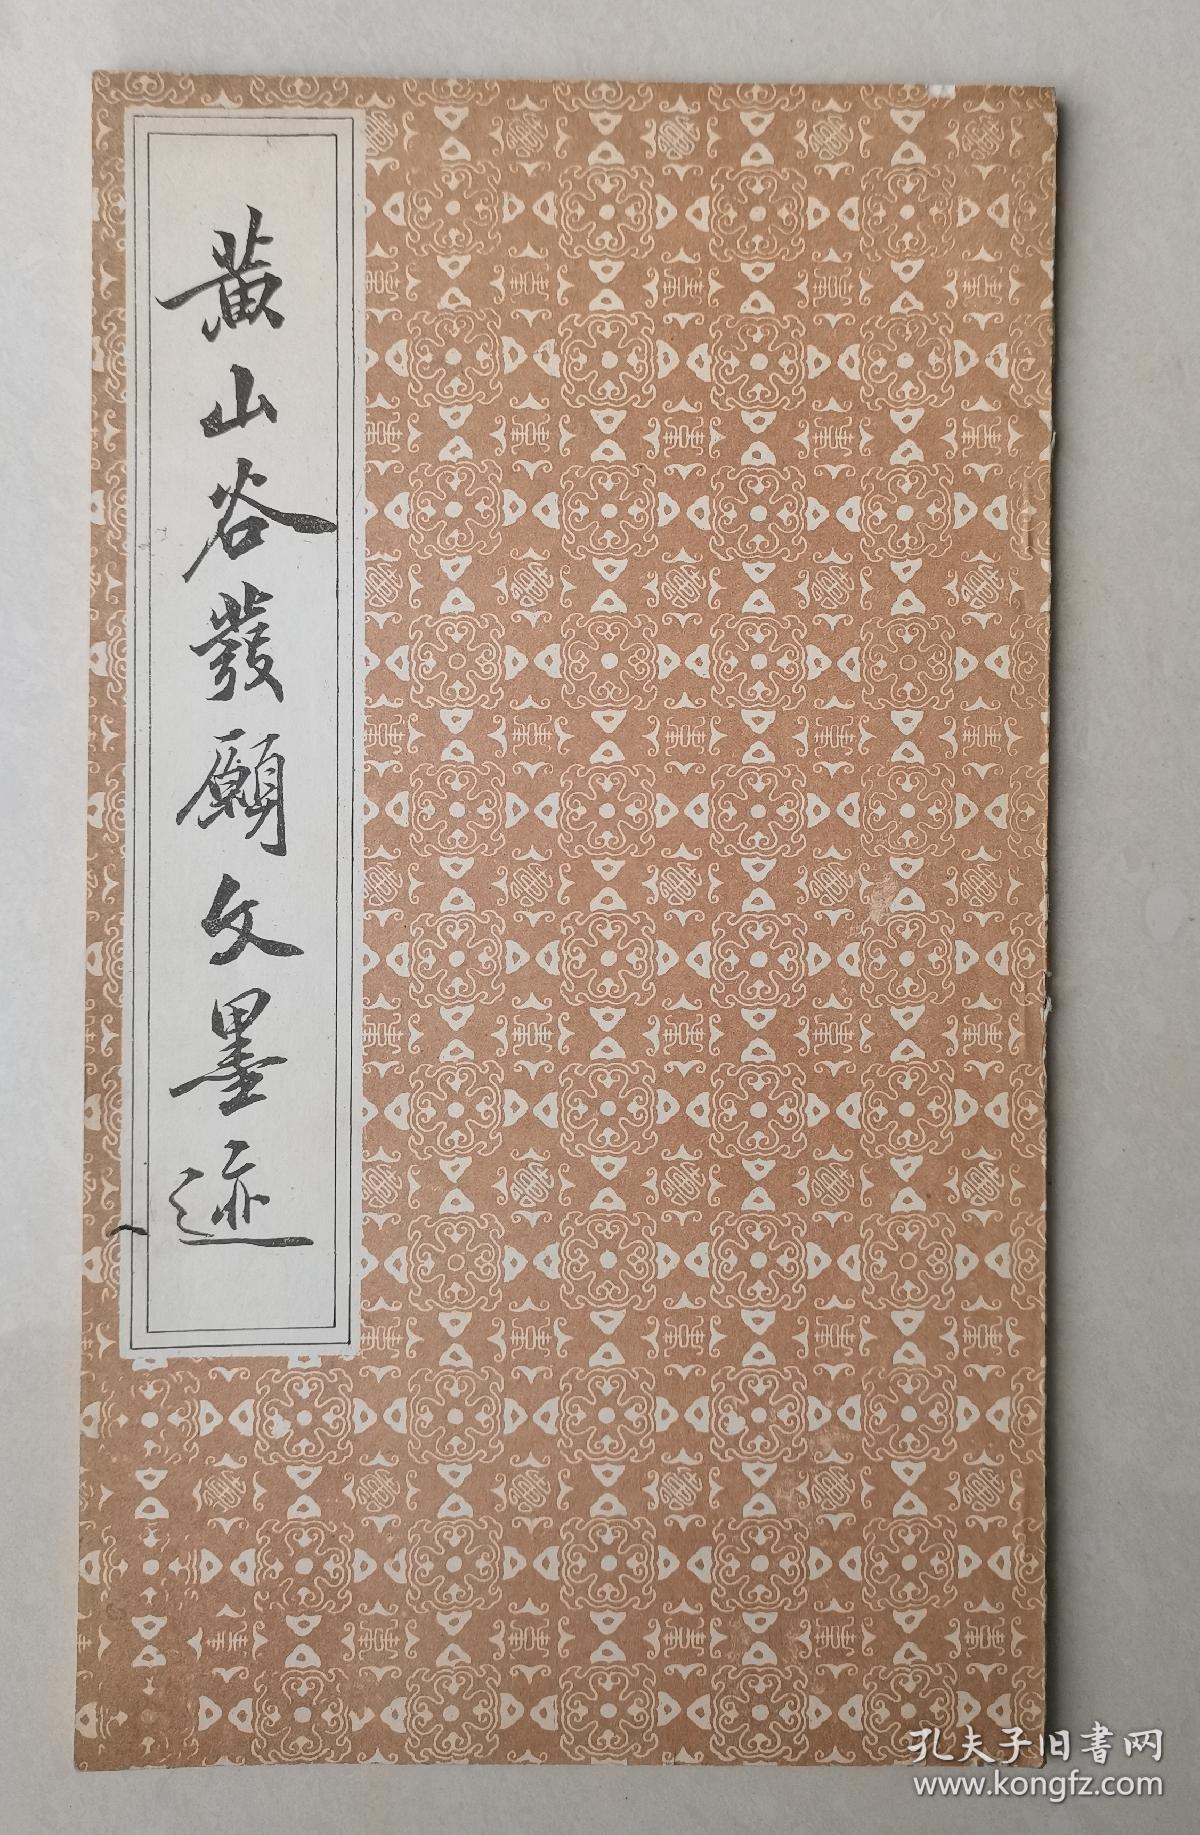 黄山谷發願文墨迹
孔夫子旧書网
www.kongfz.com